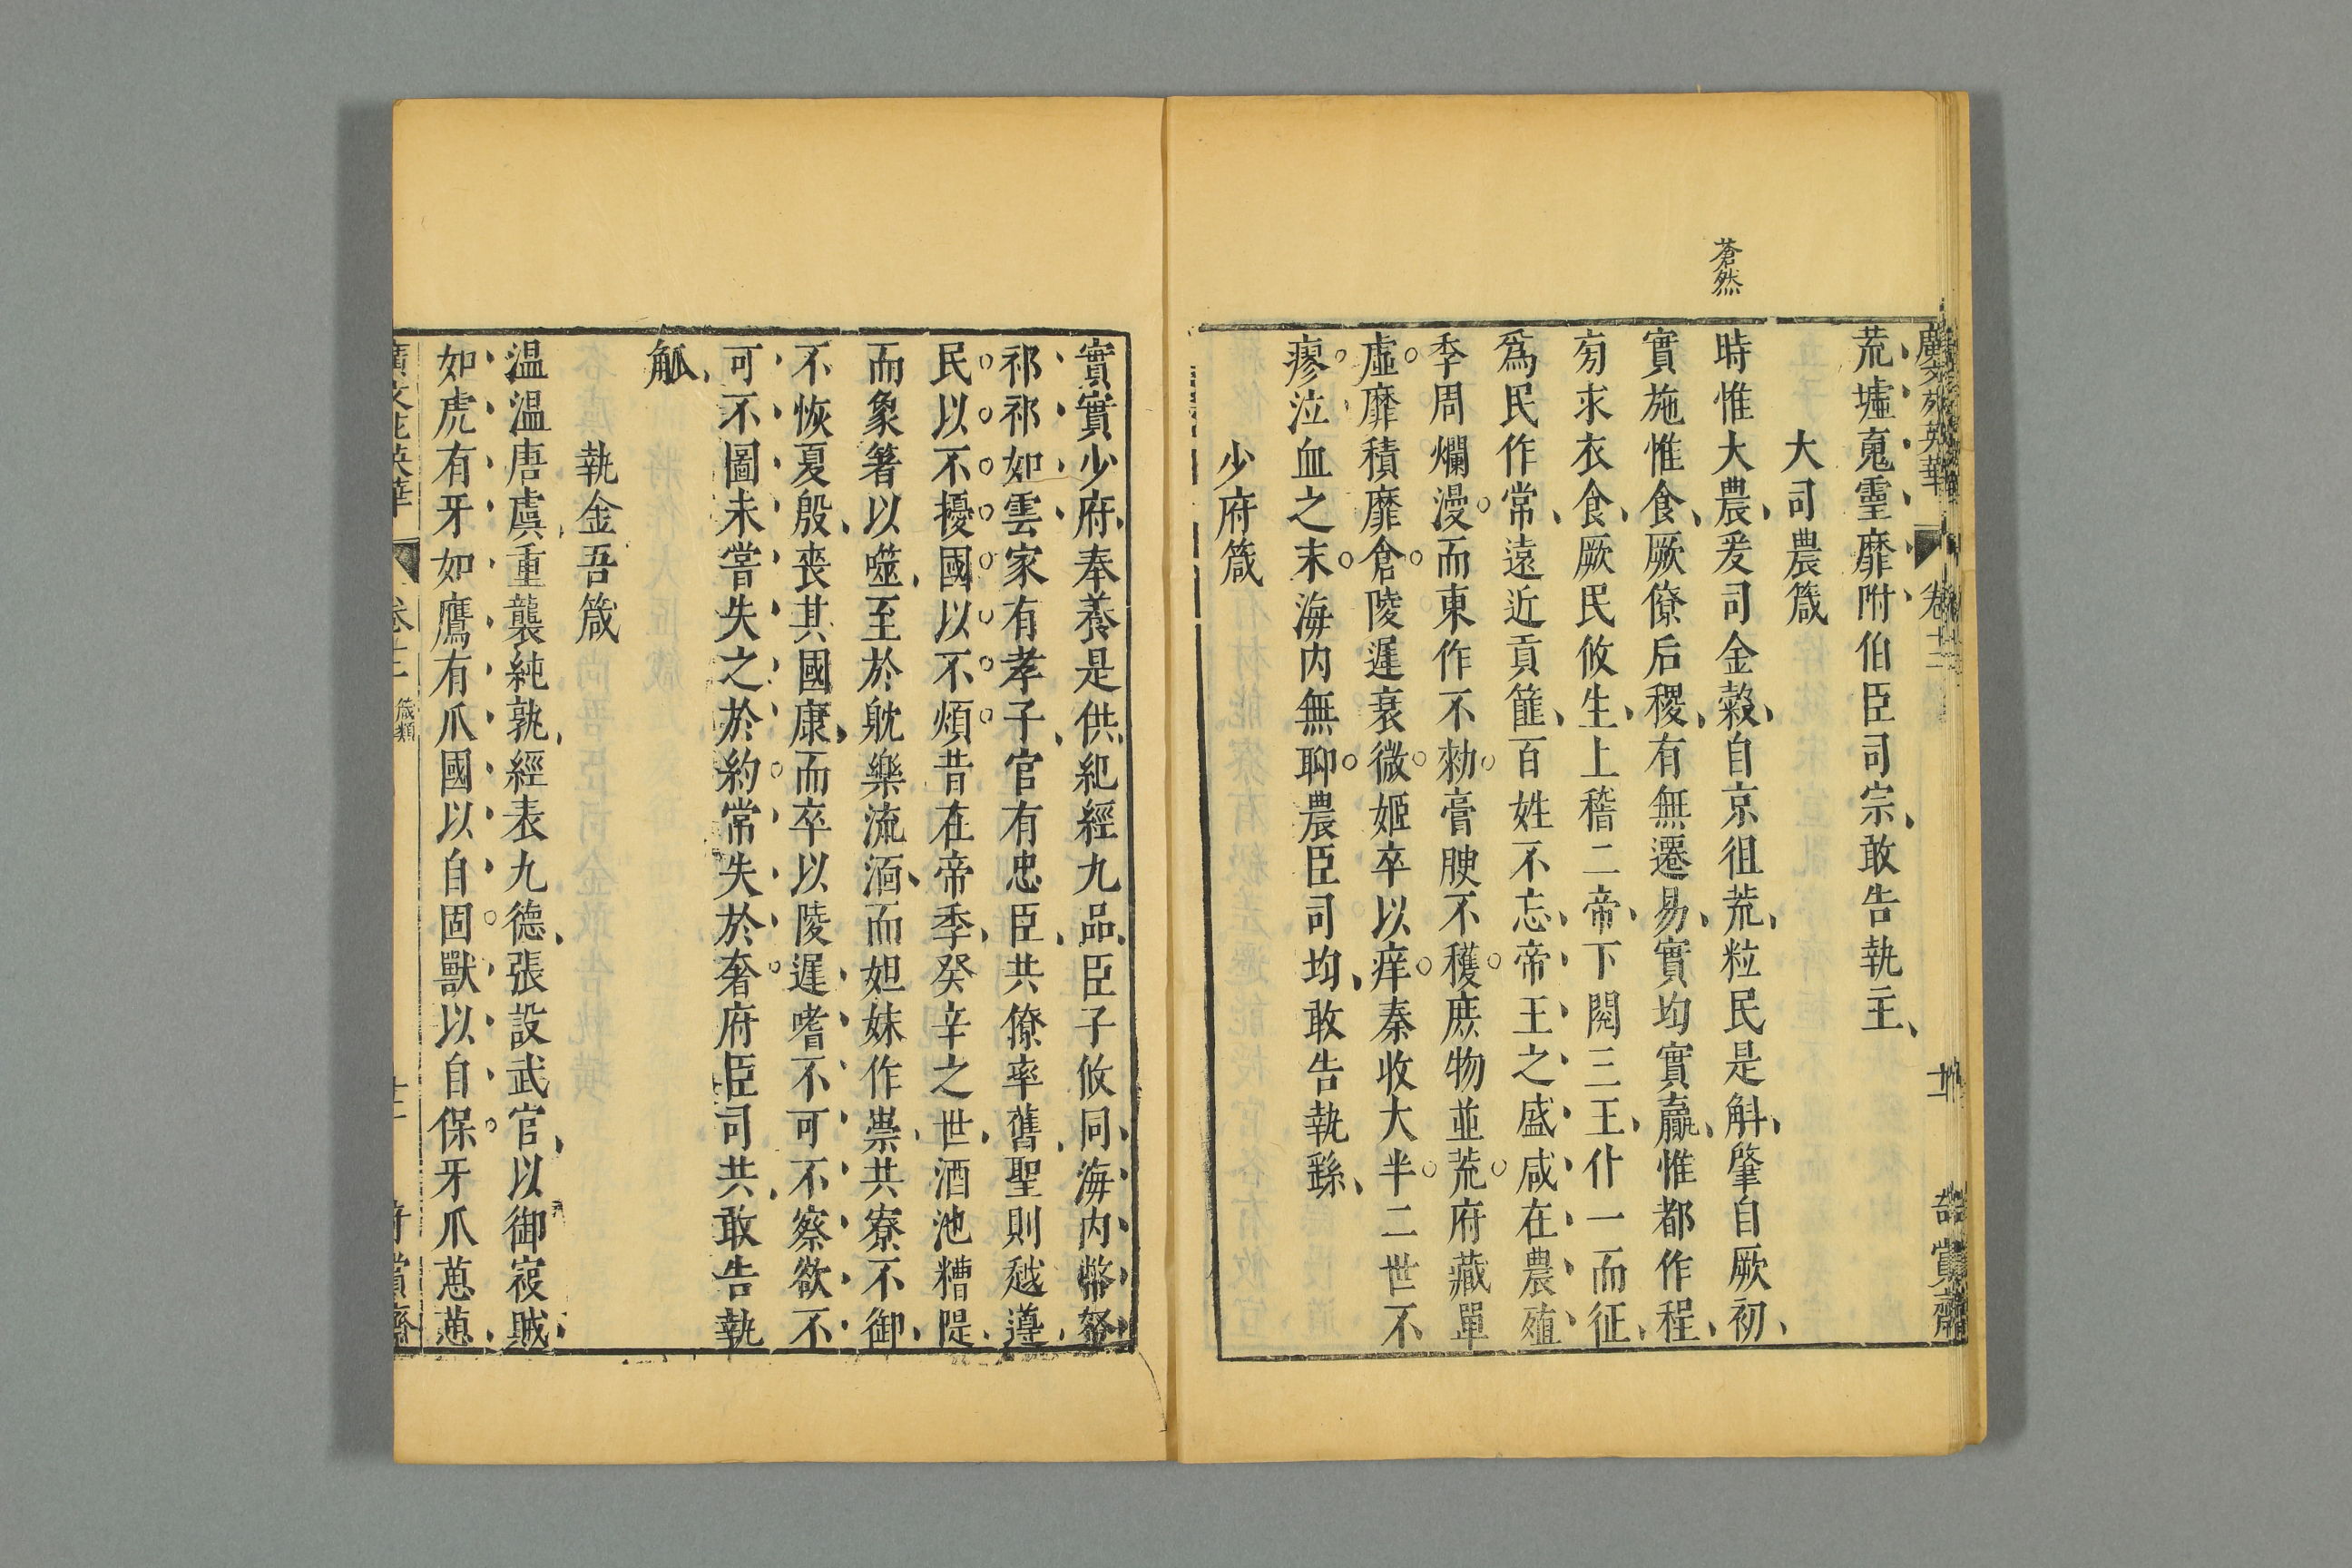 蒼然
廣文苑英華 卷十二
荒墟䰟靈靡附伯臣司宗敢告執主
大司農箴
時惟大農爰司金糓自京徂荒粒民是斛肇自厥初
實施惟食厥僚后稷有無遷易實均實贏惟都作程
旁求衣食厥民攸生上稽二帝下閱三王什一而征
爲民作常遠近貢篚百姓不忘帝王之盛咸在農殖
季周爛漫而東作不勑膏腴不穫庶物並荒府藏單
虛靡積靡倉陵遲衰微姬卒以痒秦收大半二世不
瘳泣血之末海内無聊農臣司均敢告執繇
少府箴
實實少府奉養是供紀經九品臣子攸同海内幣帑
祁祁如雲家有孝子官有忠臣共僚率舊聖則越遵
民以不擾國以不煩昔在帝季癸辛之世酒池糟隄
而象箸以噬至於躭樂流湎而妲妹作祟共寮不御
不恢夏殷喪其國康而卒以陵遲嗜不可不察欲不
可不圖未嘗失之於約常失於奢府臣司共敢告執
觚
執金吾箴
温温唐虞重襲純孰經表九德張設武官以御寇賊
如虎有牙如鷹有爪國以自固獸以自保牙爪蔥蔥
廣文苑英華 箴類